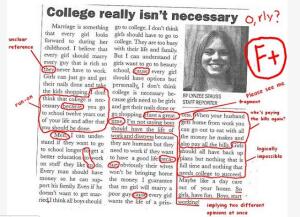 College really isn't necessary
o, rly?
unclear
reference
run-on
Marriage is something
that every girl looks
forward to during her
childhood. I believe that
every girl should marry
every guy that is rich so
they never have to work.
Girls can just go and get
their nails done and take
the kids shopping. I don't
think that college is nec-
essary because you go
to school twelve years out
of your life and after that
you should be done.
understand if they want to go
to school longer to get a
better education
on stuff they like.
Every man should have
money so he can sup-
port his family. Even if he
doesn't want to get mar-
ried I think all boys should
go to college. I don't think
girls should go to
college. They are too busy
with their life and family.
But I can understand if
girls want to go to beauty
school, cause every girl
should have hair but
personally, I don't think
college is necessary be-
cause girls need to be girls
and get their nails done or
go shopping
time. I'm not saying
should have the life of
work and distress because
they are humans but they
need to work if they want
to have a good life
not obviously their wives
won't be bringing home
the money. I guarantee
that no girl will marry a
poor guy every girl wants
wants the life of a prin-
BY LYNZEE STRAUSS
STAFF REPORTER
F+
please see me
fragment
who's paying
the bills again?
logically
impossible
cess. When your husband
gets home from work you
can go out to eat with all
the money he makes and
also pay all the bills. Girls
should all have back up
plans but nothing that is
full time and nothing that
needs college to succeed.
Maybe like a day care
out of your home. So
girls, have fun. Boys, start
working!
implying two different
opinions at once